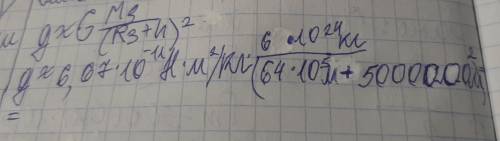 g=G Mз/(Rз+h)²
g=6,67·10⁻¹¹Н·м²/кг· 6·10²⁴кг/(64·10⁵м+5000000м)²
=